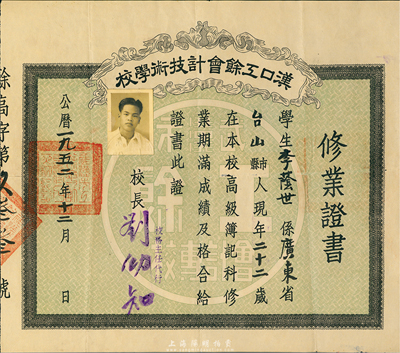 漢口工餘會計技術學校
修業證書
學生李蔭世係廣東省
台山市縣人現年二十二歲
在本校高級簿記科修
業期滿成績及格合給
證書此證
校長
校務主任代行
公曆一九五二年十二月 日
餘高字第 號
上海陽明拍賣